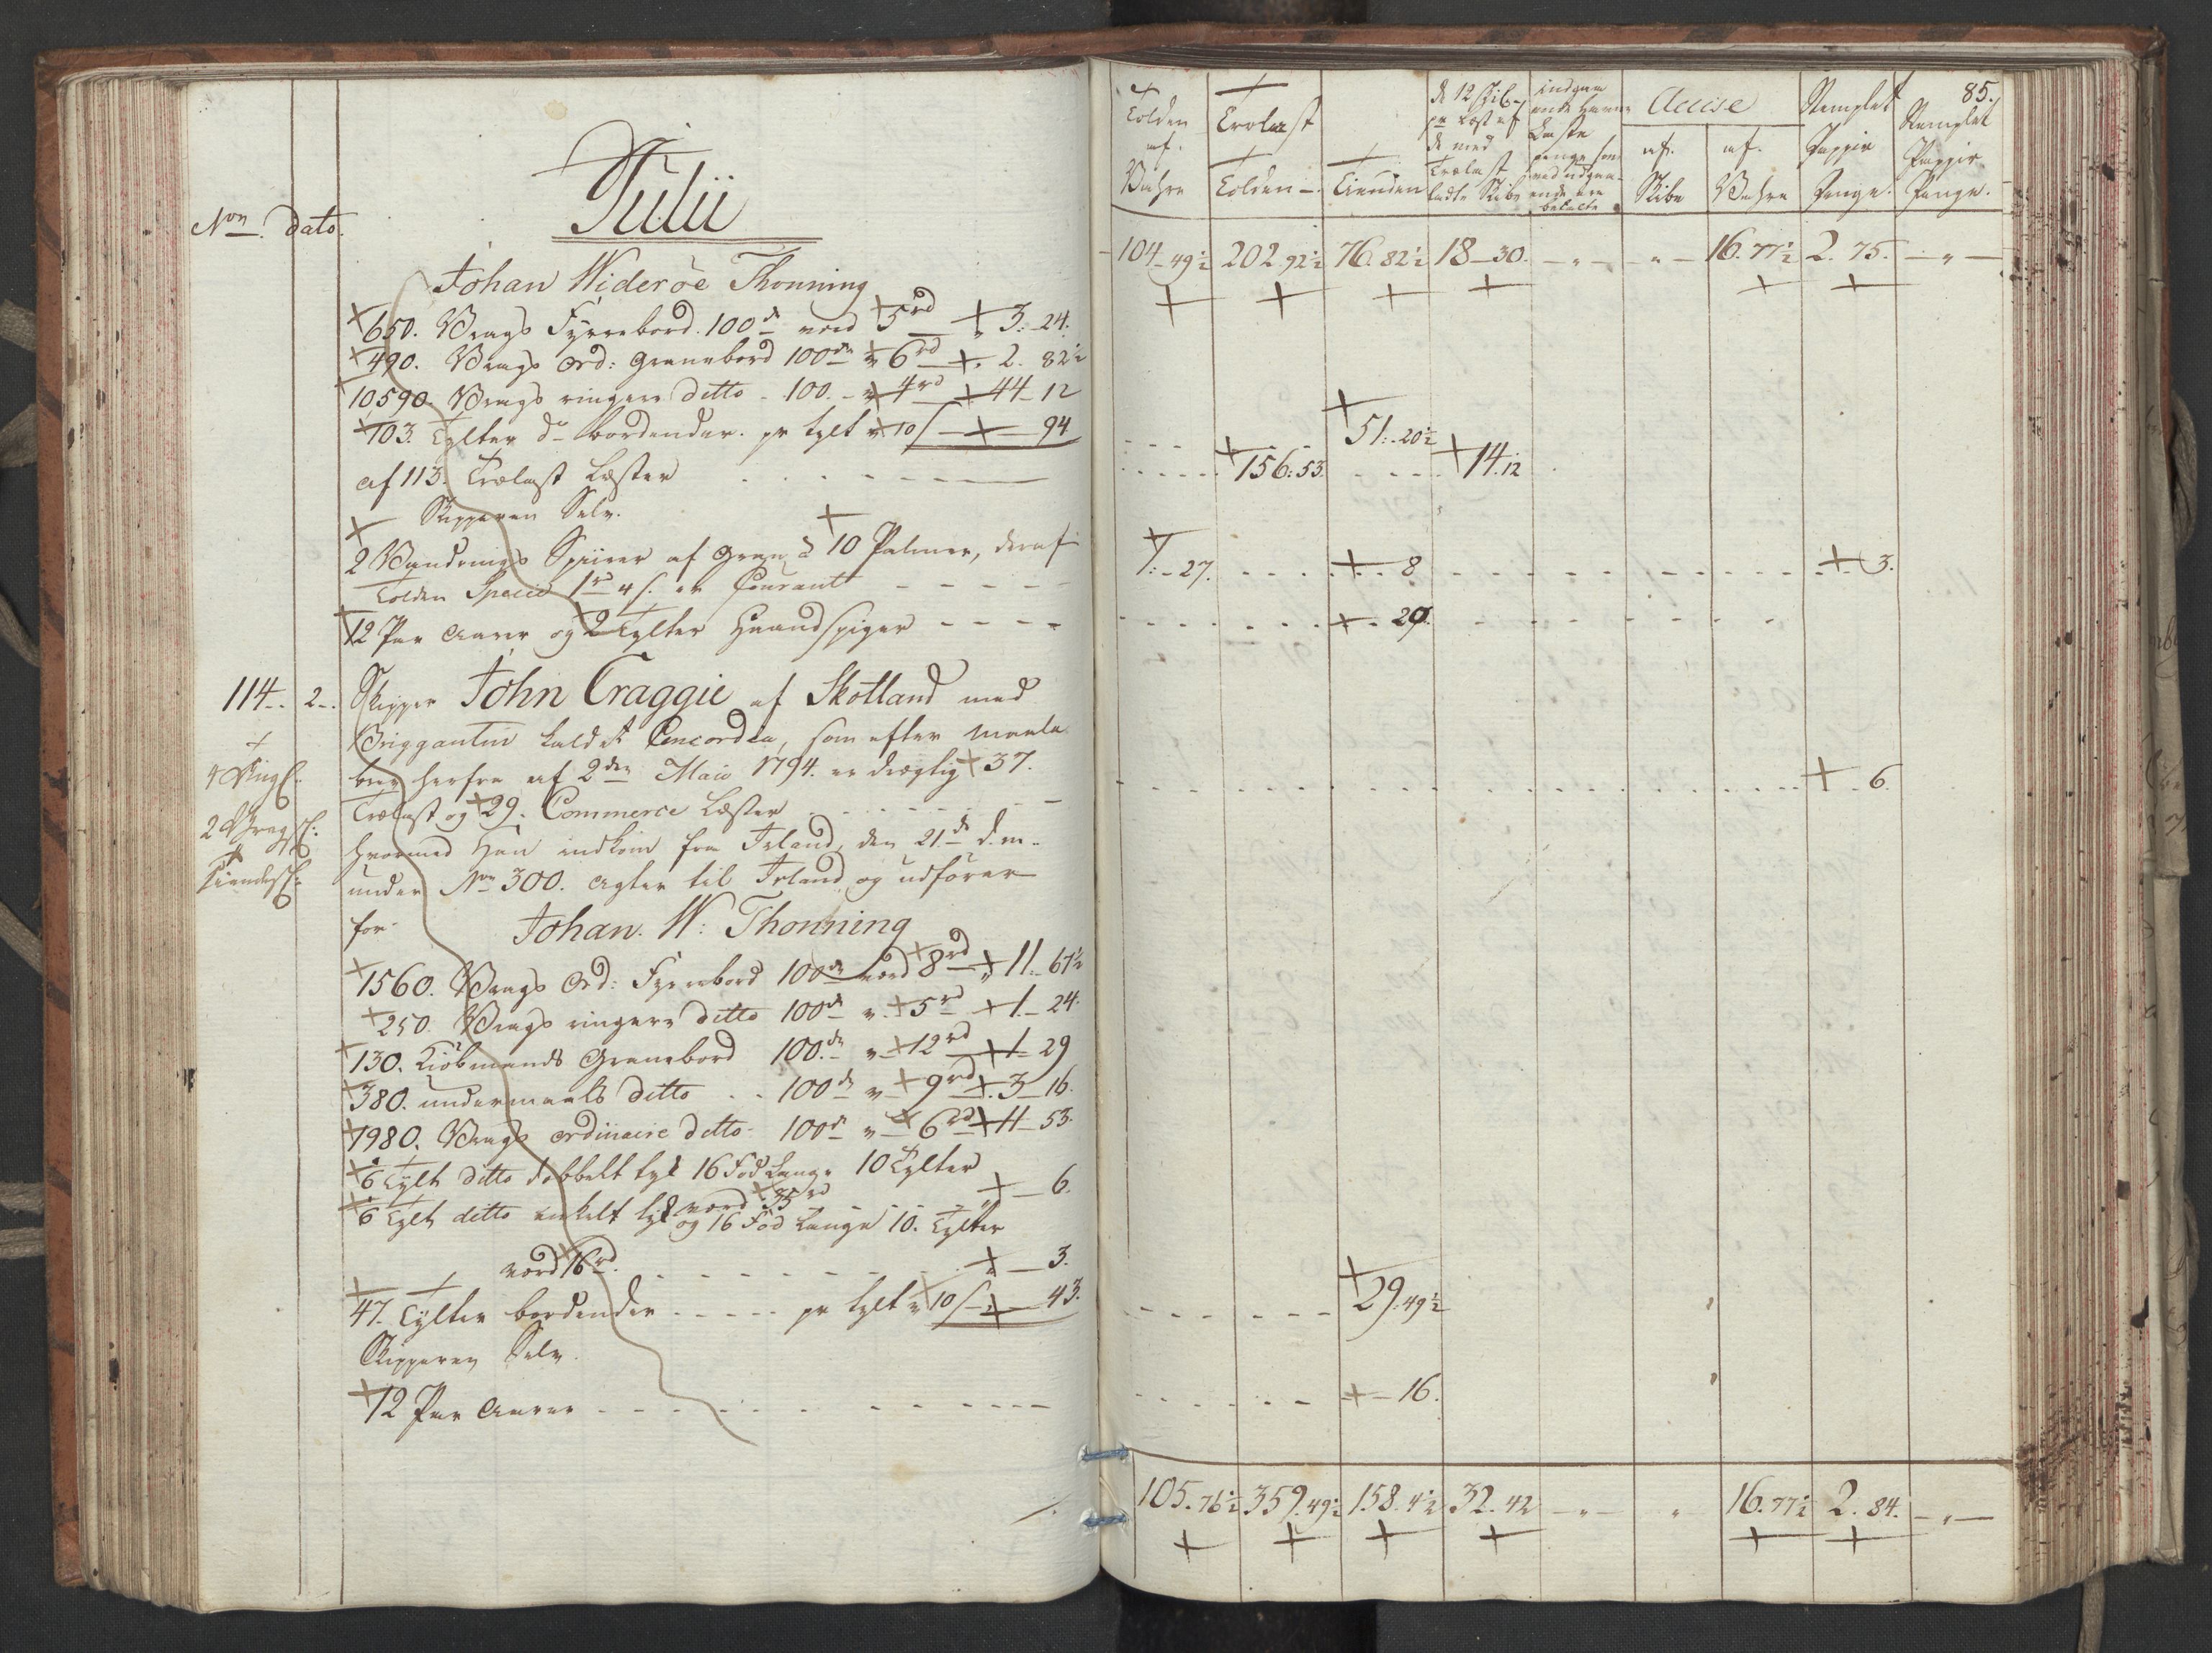 Julii
Non. Dato.
Johan Widerøe Thonning
650. Vrags Fyrrebord. 100de værd 5rd „ 3. 24.
490. Vrags Ord: Granebord 100de „ 6rd „ 2. 82½
10590. Vrags ringere ditto - 100. - „ 4rd 44 - 12
103. Tylter do bordender. pr tylt „ 10 s — 94
af 113. Trælast Læster
Skipperen Selv.
2 Vandrings Spirer af Gran à 10 Palmer, deraf
Tolden Specie 1rd 4 s. er Courant
12 Par Aarer og 2 Tylter Haandspiger
114. 2. Skipper John Craggie af Skotland med
Briggantin kaldet Concordia, som efter Maale
brev herfra af 2den Maio 1794. er drægtig 37.
Trælast og 29. Commerce Læster
hvormed Han indkom fra Irland, den 21de d. m.
under No 300. Agter til Irland og udfører
for Johan. W: Thonning
1560. Vrags Ord: Fyrrebord 100de værd 8rd „ 11. 67½
250. Vrags ringere ditto 100de „ 5rd 1. - 24.
130. Kiøbmands Granebord 100de „ 12rd 1 - 29
380. undermaals ditto . . 100de „ 9rd. 3 - 16.
1980. Vrags ordinaire ditto 100de „ 6rd 11 - 53.
6 Tylt ditto dobbelt tyk 16 Fod Lange 10 Tylter
værd 35rd „ — 6.
6 Tylt ditto enkelt tyk og 16 Fod Lange 10. Tylter
værd 16rd. „ — 3.
47. Tylter bordender - - - - pr tylt „ 10 s „ — 43.
Skipperen Selv.
12 Par Aarer
85.
Tolden af. Vahre
Trælast Tolden
Tienden
de 12 Skil. pr Læst af de med Trælast ladte Skibe
indgaaende Havne Læste penge som ved udgaaende ere betalte
Accise
af. Skibe
af. Vahre
Stemplet Pappir Penge.
Stemplet Pappir Penge.
104 - 49½ 202. 92½ 76. 82½ 18 - 30. — „ — — „ — 16. 77½ 2. 75. — „ —
51. 20½
156. 53. 14. 12
1. - 27. 8 3.
20.
6
29. 49½
16.
105. 76½ 359. 49½ 158. 4½ 32. 42 — „ — „ 16. 77½ 2. 84. — „ —